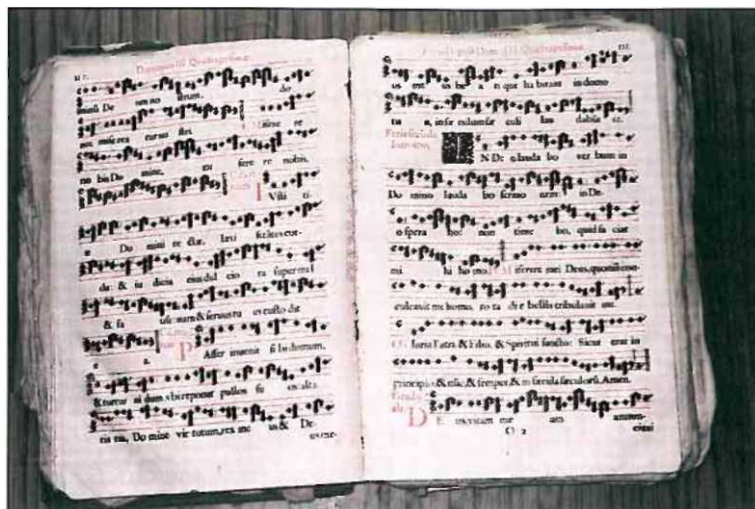 Dominica III. Quadragesimæ
minũ De um no strum, do
nec mise rea tur no stri.
no bis Do mine, mi sere re nobis.
I Vsti ti-
æ Do mini re ctæ, læti ficãtes cor-
da: & iu dicia eius dul cio ra super mel
& fa uum: nam & seruus tu us custo dit
e a. P Asser inuenit si bi domum,
& turtur ni dum, vbi reponat pullos su os: alta
ria tua, Do mine vir tutum, rex me us & De-
us me-
Quadragesimæ
us me us: be a ti qui ha bitant in domo
tu a, in sæ culum sæ culi lau dabũt te.
Feria secunda
Introitus. I N De o lauda bo ver bum in
Do mino lauda bo sermo nem: in De-
o spera bo: non time bo, quid fa ciat
mi hi ho mo. Miserere mei Deus, quoniã con-
culcauit me homo, to ta di e bellãs tribulauit me.
Gloria Patri, & Filio, & Spiritui sancto: Sicut erat in
principio, & nũc, & semper, & in sæcula sæculorũ. Amen.
Gradu-
ale. D E us vitam me am annun-
D 2 ciaui